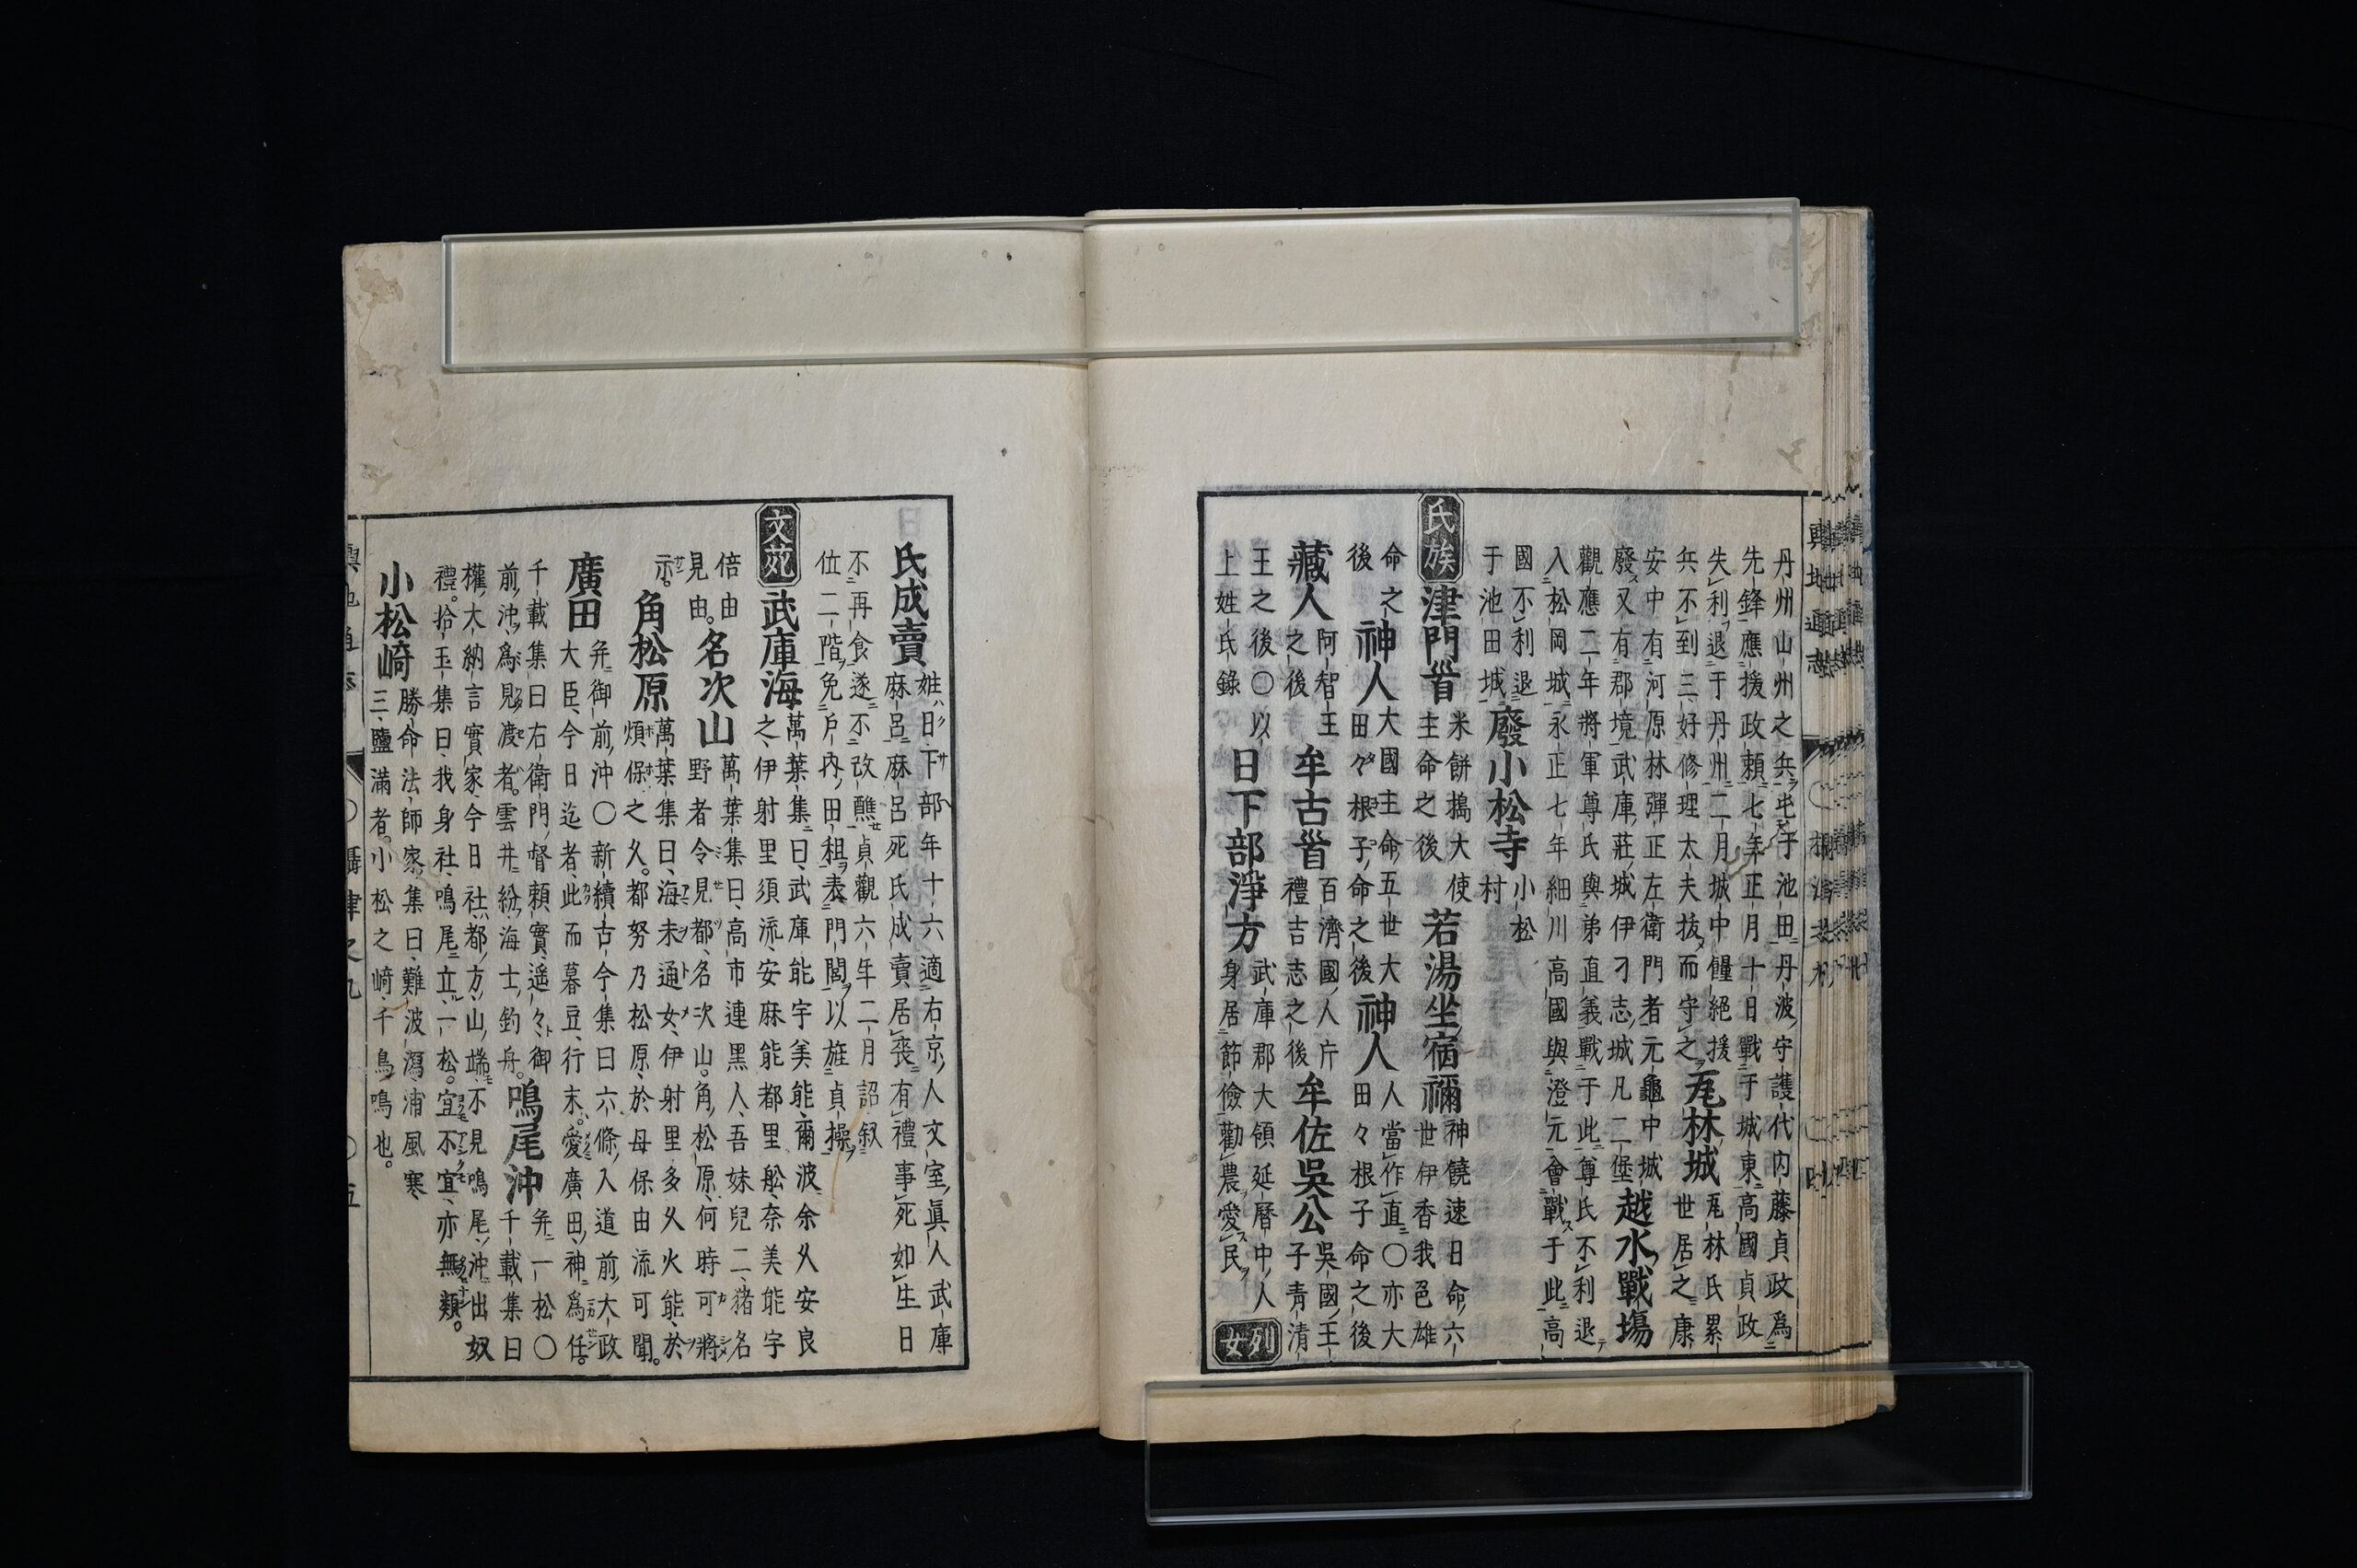 丹州山州之兵屯于池田丹波守護代内藤貞政爲
先鋒應援政頼七年正月十日戰于城東高國貞政
失利退于丹州二月城中饉絕援
兵不到三好修理太夫拔而守之
瓦林城
瓦林氏累
世居之康
安中有河原林彈正左衛門者元龜中城
廢又有郡境武庫莊城伊刁志城凡二堡
越水戰塲
觀應二年將軍尊氏與弟直義戰于此尊氏不利退
入松岡城永正七年細川高國與澄元會戰于此高
國不利退
于池田城
廢小松寺
小松
村
氏族
津門首
米餅搗大使
主命之後
若湯坐宿禰
神饒速日命六
世伊香我色雄
命之
後
神人
大國主命五世大
田々根子命之後
神人
人當作直〇亦大
田々根子命之後
藏人
阿智王
之後
牟古首
百濟國人片
禮吉志之後
牟佐吳公
吳國王
子青清
王之後〇以
上姓氏錄
日下部淨方
武庫郡大領延曆中人
身居節儉勸農愛民
列女
氏成賣
姓日下部年十六適右京人文室眞人武庫
麻呂麻呂死氏成賣居喪有禮事死如生日
不再食遂不改醮貞觀六年二月詔叙
位二階免戶內田租表門閭以旌貞操
文苑
武庫海
萬葉集曰武庫能宇美能爾波余久安良
之伊射里須流安麻能都里船奈美能宇
倍由
見由
名次山
萬葉集曰高市連黑人吾妹兒二猪名
野者令見都名次山角松原何時可將
示
角松原
萬葉集曰海未通女伊射里多久火能於
煩保之久都努乃松原於母保由流可聞
廣田
弁御前沖〇新續古今集曰六條入道前大政
大臣今日迄者此而暮豆行末愛廣田神爲任
千載集曰右衛門督頼實遥々御
前沖爲見渡者雲井紛海士釣舟
鳴尾沖
弁一松〇
千載集曰
權大納言實家今日社都方山端不見鳴尾沖出奴
禮拾玉集曰我身社鳴尾立一松宜不宜亦無類
小松崎
勝命法師家集曰難波瀉浦風寒
三鹽滿者小松之崎千鳥鳴也